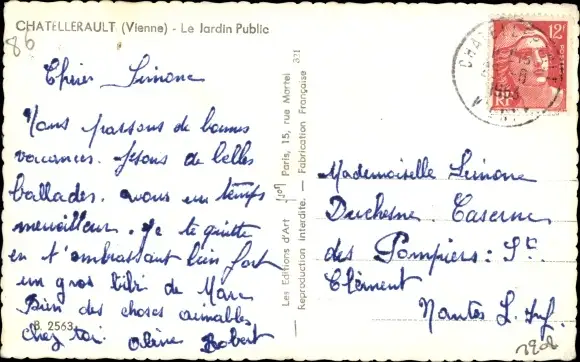 CHATELLERAULT (Vienne) - Le Jardin Public
86
Chère Simone
Nous passons de bonnes
vacances. fesons de belles
ballades. nous un temps
merveilleux. Je te quitte
en t'embrassant bien fort
un gros bibi de Marc
Bien des choses aimables
B. 2563
chez toi. Robert
Les Editions d'Art Paris, 15, rue Martel
Reproduction interdite. — Fabrication Française
12F
RF
Mademoiselle Simone
Duchesne. Caserne
des Pompiers: St
Clément
Nantes L. Inf.